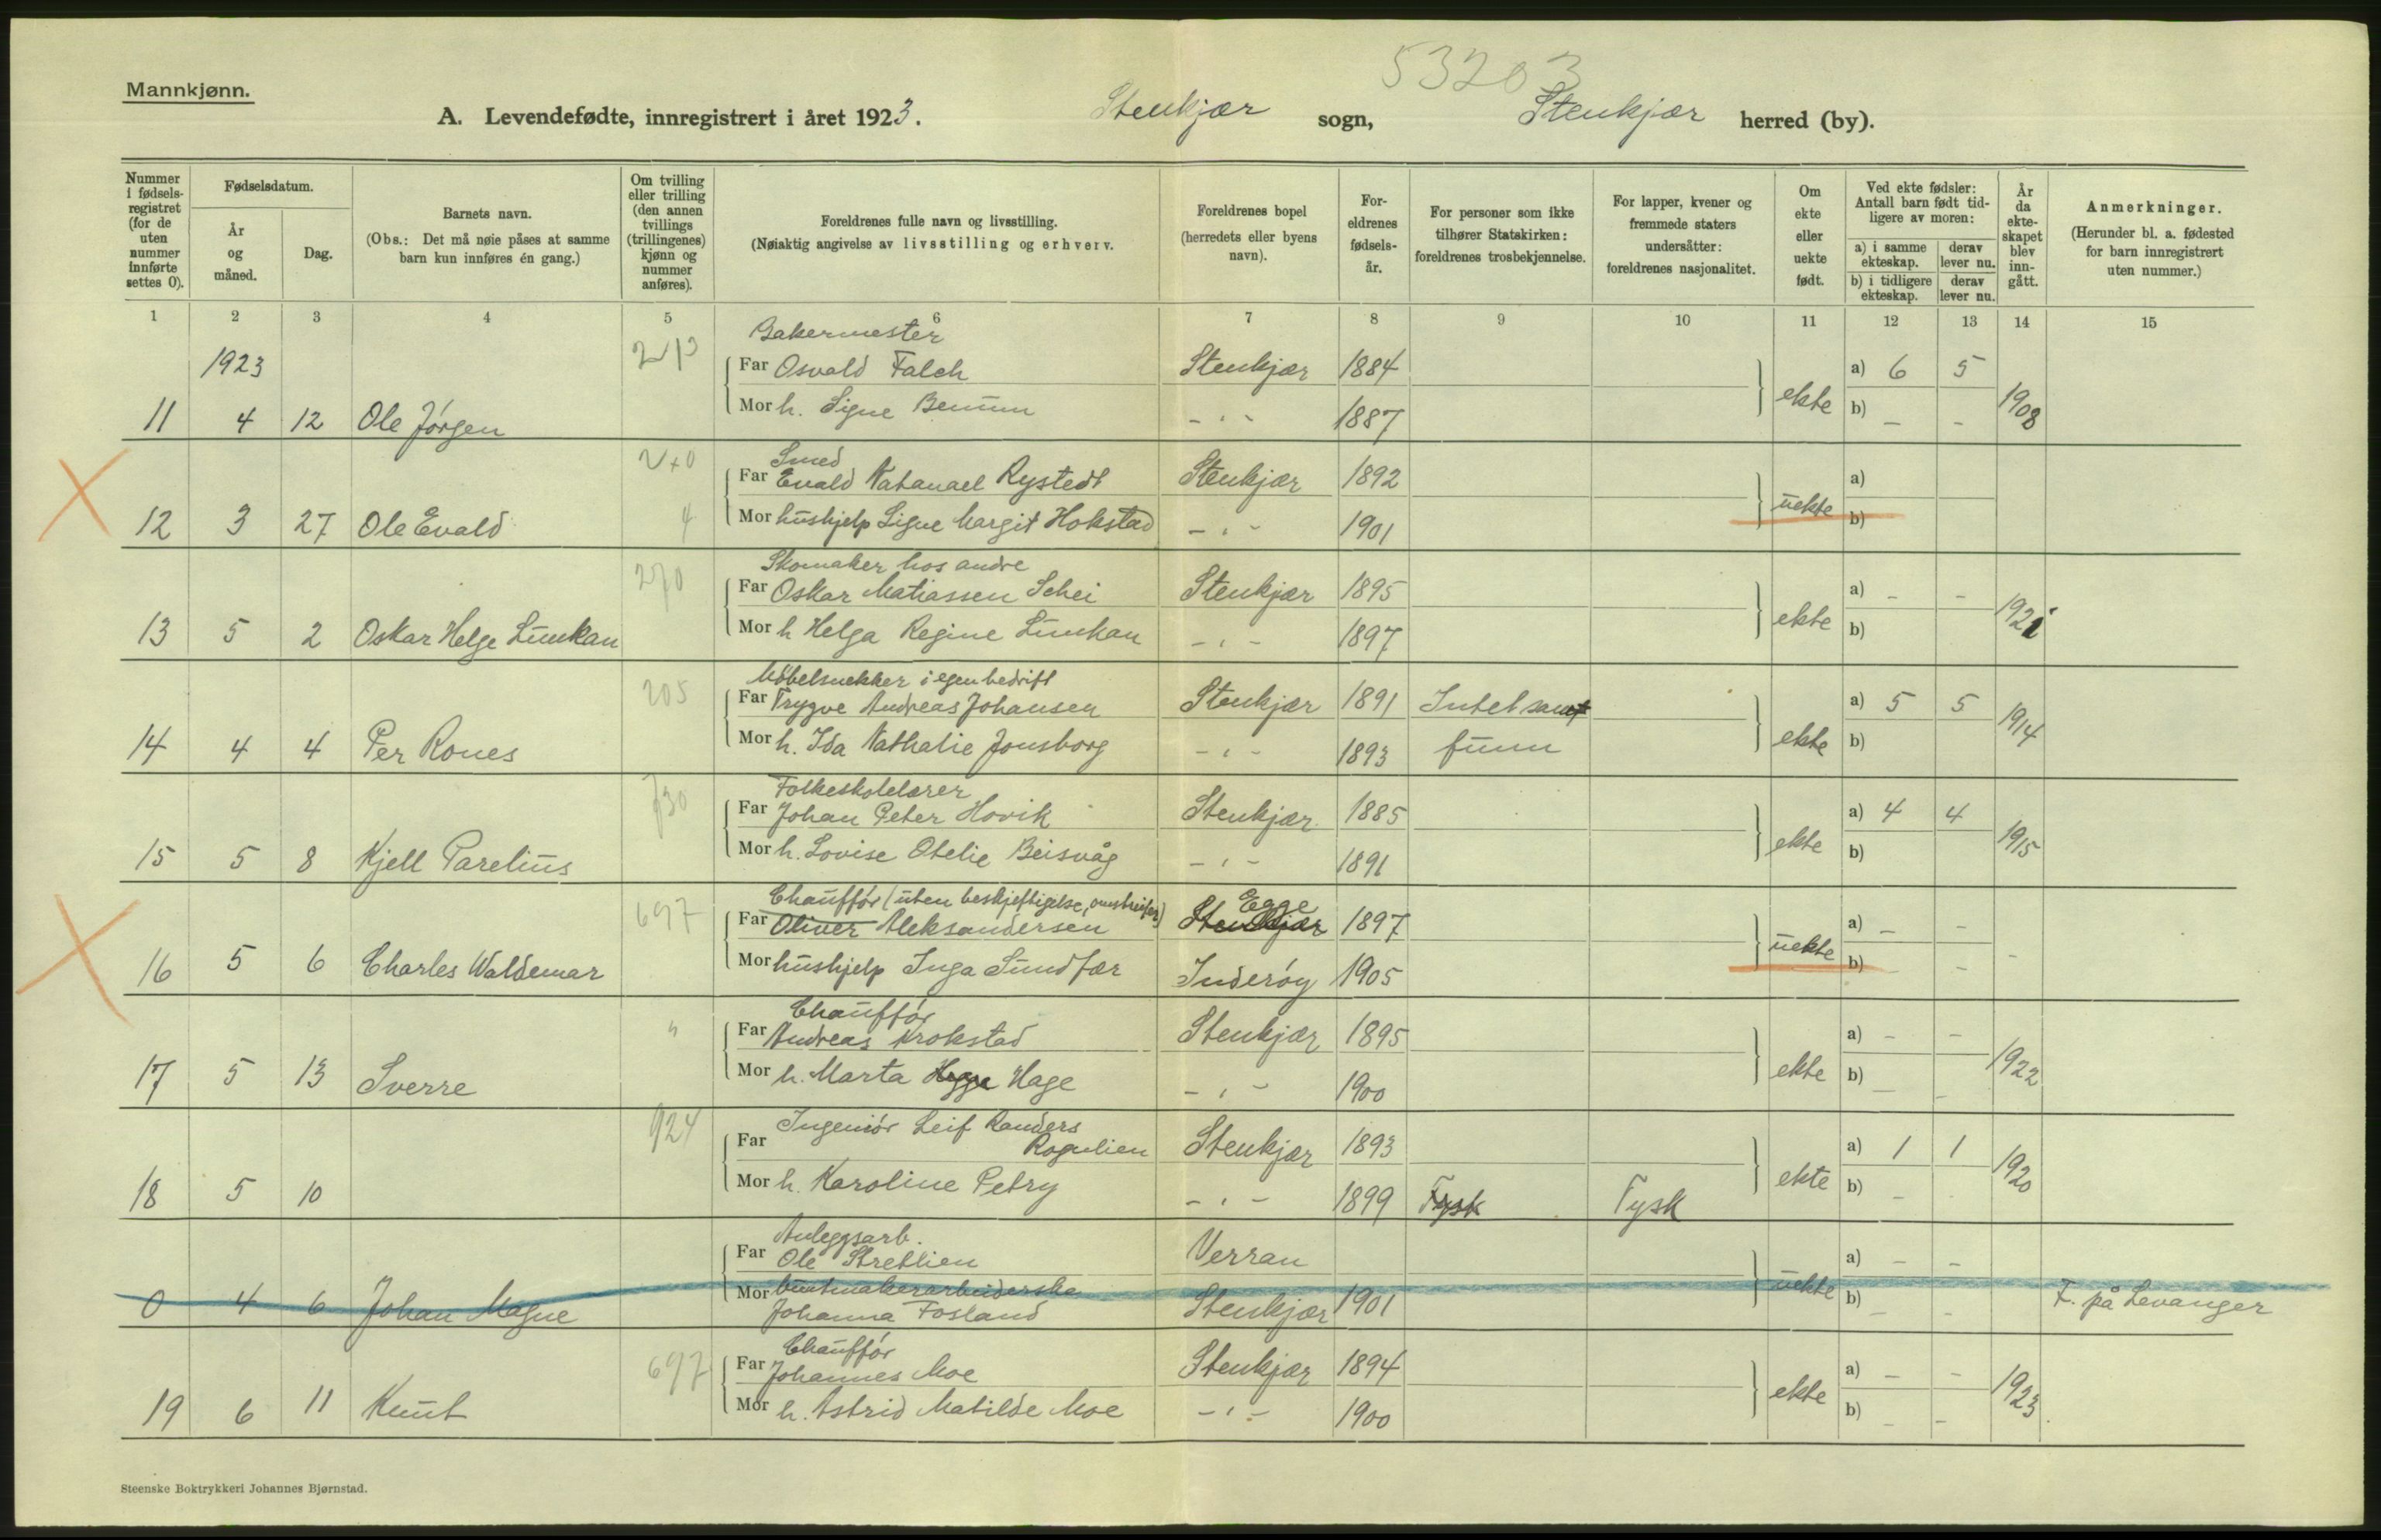 53203
Mannkjønn.
A. Levendefødte, innregistrert i året 1923. Stenkjær sogn, Stenkjær herred (by).
Nummer i fødselsregistret (for de uten nummer innførte settes 0).
Fødselsdatum.
År og måned.
Dag.
Barnets navn.
(Obs.: Det må nøie påses at samme barn kun innføres én gang.)
Om tvilling eller trilling (den annen tvillings (trillingenes) kjønn og nummer anføres).
Foreldrenes fulle navn og livsstilling.
(Nøiaktig angivelse av livsstilling og erhverv.
Foreldrenes bopel (herredets eller byens navn).
Foreldrenes fødselsår.
For personer som ikke tilhører Statskirken: foreldrenes trosbekjennelse.
For lapper, kvener og fremmede staters undersåtter: foreldrenes nasjonalitet.
Om ekte eller uekte født.
Ved ekte fødsler: Antall barn født tidligere av moren:
a) i samme ekteskap.
derav lever nu.
b) i tidligere ekteskap.
derav lever nu.
År da ekteskapet blev inngått.
Anmerkninger.
(Herunder bl. a. fødested for barn innregistrert uten nummer.)
1 2 3 4 5 6 7 8 9 10 11 12 13 14 15
Bakermester
1923 Far Osvald Falch Stenkjær 1884 a) 6 5
11 4 12 Ole Jørgen Mor h. Signe Benum - " - 1887 ekte b) - - 1908
Smed
Far Evald Natanael Rystedt Stenkjær 1892 a)
12 3 27 Ole Evald 4 Mor hushjelp Signe Margit Hokstad - " - 1901 uekte b)
Skomaker hos andre
270 Far Oskar Matiassen Schei Stenkjær 1895 a) - -
13 5 2 Oskar Helge Lunkan Mor h Helga Regine Lunkan - " - 1897 ekte b) 1921
Møbelsnekker i egen bedrift
205 Far Trygve Andreas Johansen Stenkjær 1891 Intet samf a) 5 5
14 4 4 Per Rones Mor h. Ida Nathalie Jonsborg - " - 1893 funn ekte b) 1914
Folkeskolelærer
730 Far Johan Peter Hovik Stenkjær 1885 a) 4 4
15 5 8 Kjell Parelius Mor h. Lovise Otelie Beisvåg - " - 1891 ekte b) 1915
Chauffør (uten beskjeftigelse, omstreifer)
697 Far Oliver Aleksandersen Stenkjær Egge 1897 a) - -
16 5 6 Charles Waldemar Mor hushjelp Inga Sundfær Inderøy 1905 uekte b) - - -
Chauffør
" Far Andreas Krokstad Stenkjær 1895 a) - -
17 5 13 Sverre Mor h. Marta Hegge Hage - " - 1900 ekte b) - - 1922
924 Ingeniør Leif Randers
Far Rognlien Stenkjær 1893 a) 1 1
18 5 10 Mor h. Karoline Petry - " - 1899 Tysk Tysk ekte b) - - 1920
Anleggsarb.
Far Ole Stretlien Verran a) - -
Mor buntmakerarbeiderske
0 4 6 Johan Magne Johanna Fosland Stenkjær 1901 uekte b) - - F. på Levanger
Chauffør
697 Far Johannes Moe Stenkjær 1894 a) - -
19 6 11 Knut Mor h. Astrid Matilde Moe - " - 1900 ekte b) - - 1923
Steenske Boktrykkeri Johannes Bjørnstad.